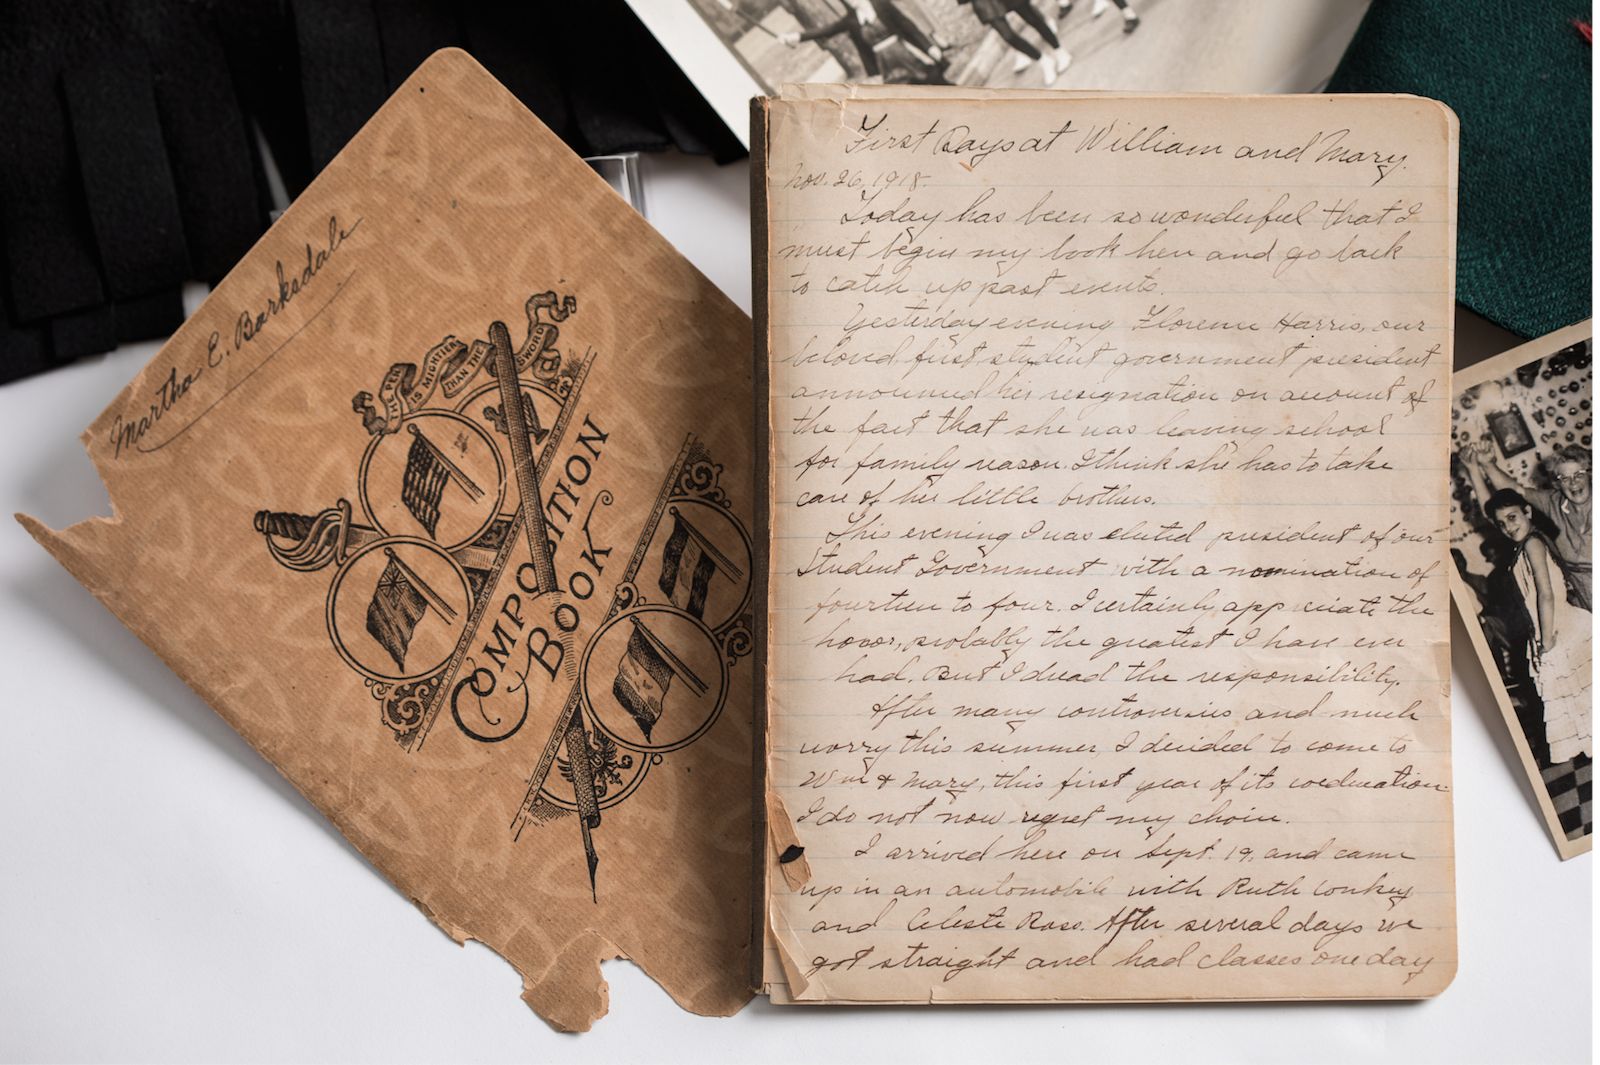 Martha E. Barksdale
THE PEN
IS MIGHTIER
THAN THE
SWORD
COMPOSITION
BOOK
First Days at William and Mary.
Nov. 26, 1918.
Today has been so wonderful that I
must begin my book here and go back
to catch up past events.
Yesterday evening Florence Harris, our
beloved first student government president
announced her resignation on account of
the fact that she was leaving school
for family reason. I think she has to take
care of her little brothers.
This evening I was elected president of our
Student Government with a nomination of
fourteen to four. I certainly appreciate the
honor, probably the greatest I have ever
had. But I dread the responsibility.
After many controversies and much
worry this summer, I decided to come to
Wm & Mary, this first year of its coeducation.
I do not now regret my choice.
I arrived here on Sept. 19, and came
up in an automobile with Ruth Conkey
and Celeste Ross. After several days we
got straight and had classes one day